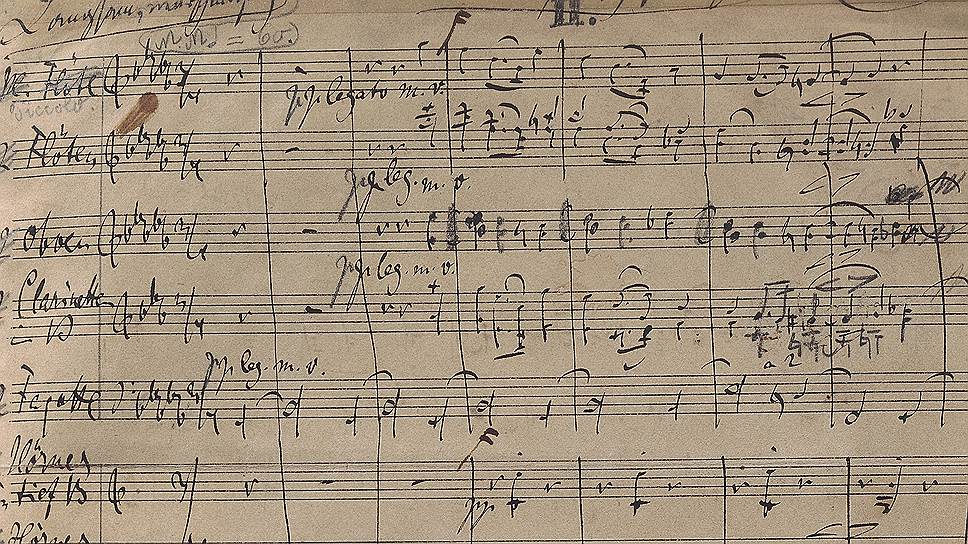 Langsam, marschmäßig II.
(M.M. = 60.)
Kl. Flöte
Piccolo. pp legato m. v.
Flöten
pp leg. m. v.
Oboen
pp leg. m. v.
Clarinetten
B
a 2
pp leg. m. v.
Fagotte
Hörner
tief B
pp
Hörner